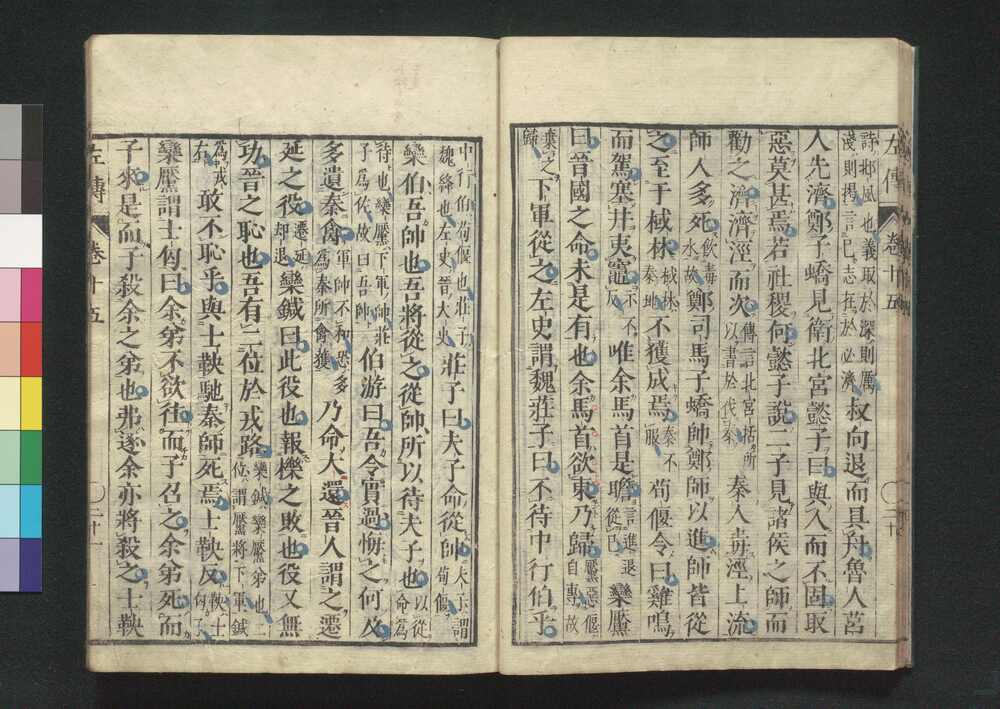 左傳 卷十五 二十
詩邶風也義取於深則厲淺則揭言己志在於必濟叔向退而具舟魯人莒
人先濟鄭子蟜見衛北宮懿子曰與人而不固取
惡莫甚焉若社稷何懿子說二子見諸侯之師而
勸之濟濟涇而次傳言北宮括所以書於伐秦秦人毒涇上流
師人多死飲毒水故鄭司馬子蟜帥鄭師以進師皆從
之至于棫林棫林秦地不獲成焉秦不服荀偃令曰雞鳴
而駕塞井夷竈示不反唯余馬首是瞻言進退從己欒黶
曰晉國之命未是有也余馬首欲東乃歸黶惡偃自專故
棄之歸下軍從之左史謂魏莊子曰不待中行伯乎
中行伯荀偃也莊子魏絳也左史晉大史莊子曰夫子命從帥夫子謂荀偃
欒伯吾帥也吾將從之從帥所以待夫子也以從命爲
待也欒黶下軍帥莊子爲佐故曰吾帥伯游曰吾令實過悔之何及
多遺秦禽軍帥不和恐多爲秦所禽獲乃命大還晉人謂之遷
延之役遷延却退欒鍼曰此役也報櫟之敗也役又無
功晉之恥也吾有二位於戎路欒鍼欒黶弟也二位謂黶將下軍鍼
爲戎右敢不恥乎與士鞅馳秦師死焉士鞅反鞅士匄子
欒黶謂士匄曰余弟不欲往而子召之余弟死而
子來是而子殺余之弟也弗逐余亦將殺之士鞅
左傳 卷十五 二十一